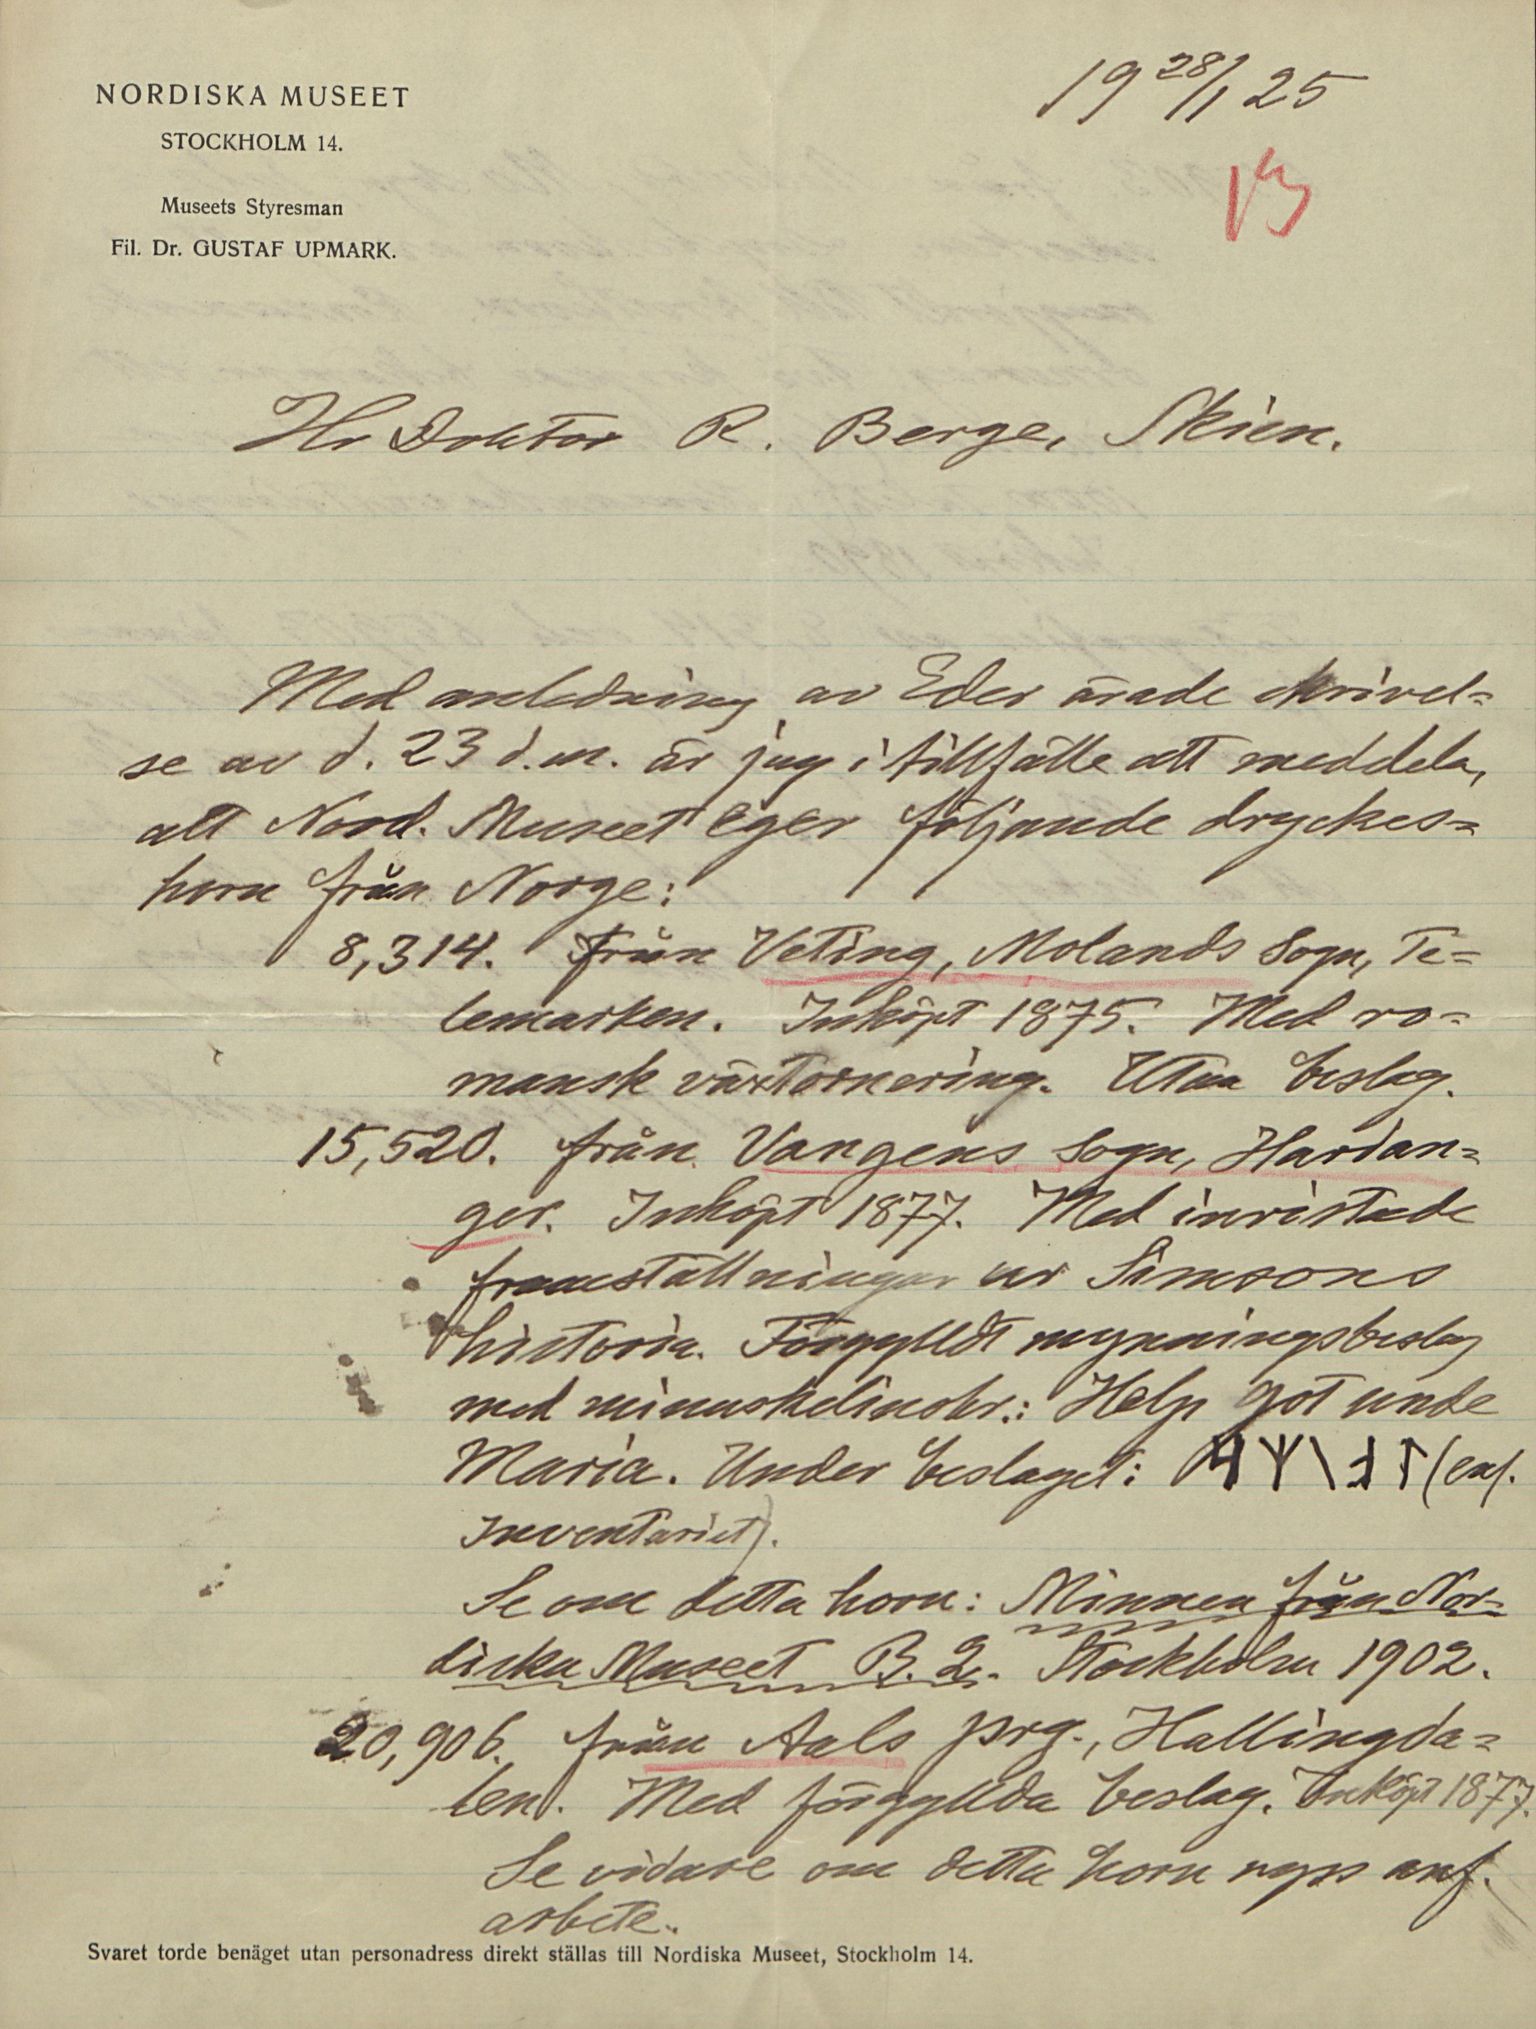 NORDISKA MUSEET
STOCKHOLM 14.
Museets Styresman
Fil. Dr. GUSTAF UPMARK.
19 28/1 25
Hr Doktor R. Berge, Skien.
Med anledning av Eder ärade skrivel=
se av d. 23 d.m. är jag i tillfälle att meddela,
att Nord. Museet eger följande dryckes=
horn från Norge:
8,314. från Veting, Molands Sogn, Te=
lemarken. Inköpt 1875. Med ro=
mansk växtornering. Utan beslag.
15,520. från Vangens Sogn, Hardan=
ger. Inköpt 1877. Med inristade
framställningar ur Simsons
historia. Förgylldt mynningsbeslag
med minuskelinskr.: Help got unde
Maria. Under beslaget: (enl.
Inventariet).
Se om detta horn: Minnen från Nor=
diska Museet B. 2. Stockholm 1902.
20,906. från Aals prg., Hallingda=
len. Med förgyllda beslag. Inköpt 1877.
Se vidare om detta horn nyss anf.
arbete.
Svaret torde benäget utan personadress direkt ställas till Nordiska Museet, Stockholm 14.